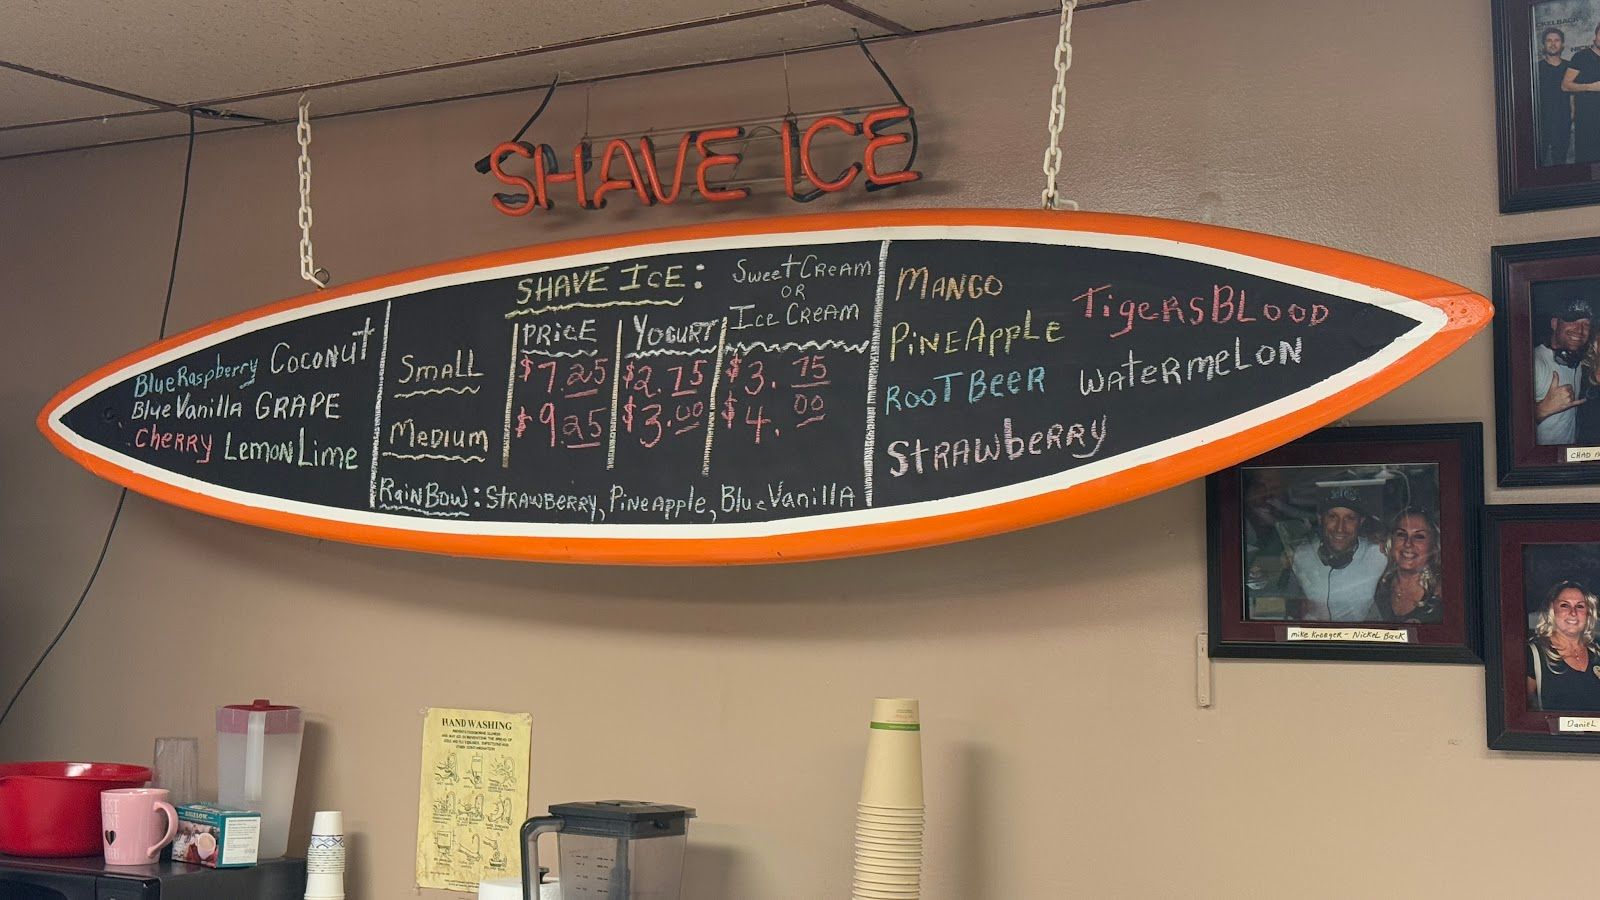 SHAVE ICE
Blue Raspberry Coconut
Blue Vanilla GRAPE
Cherry Lemon Lime
SHAVE ICE: Sweet Cream
OR
Ice Cream
PRICE YOGURT
Small $7.25 $2.75 $3.75
Medium $9.25 $3.00 $4.00
RainBow: Strawberry, Pineapple, Blue Vanilla
Mango
PineApple
Root Beer
Strawberry
Tigers Blood
Watermelon
mike kroeger - Nickel Back
CHAD
Daniel
HAND WASHING